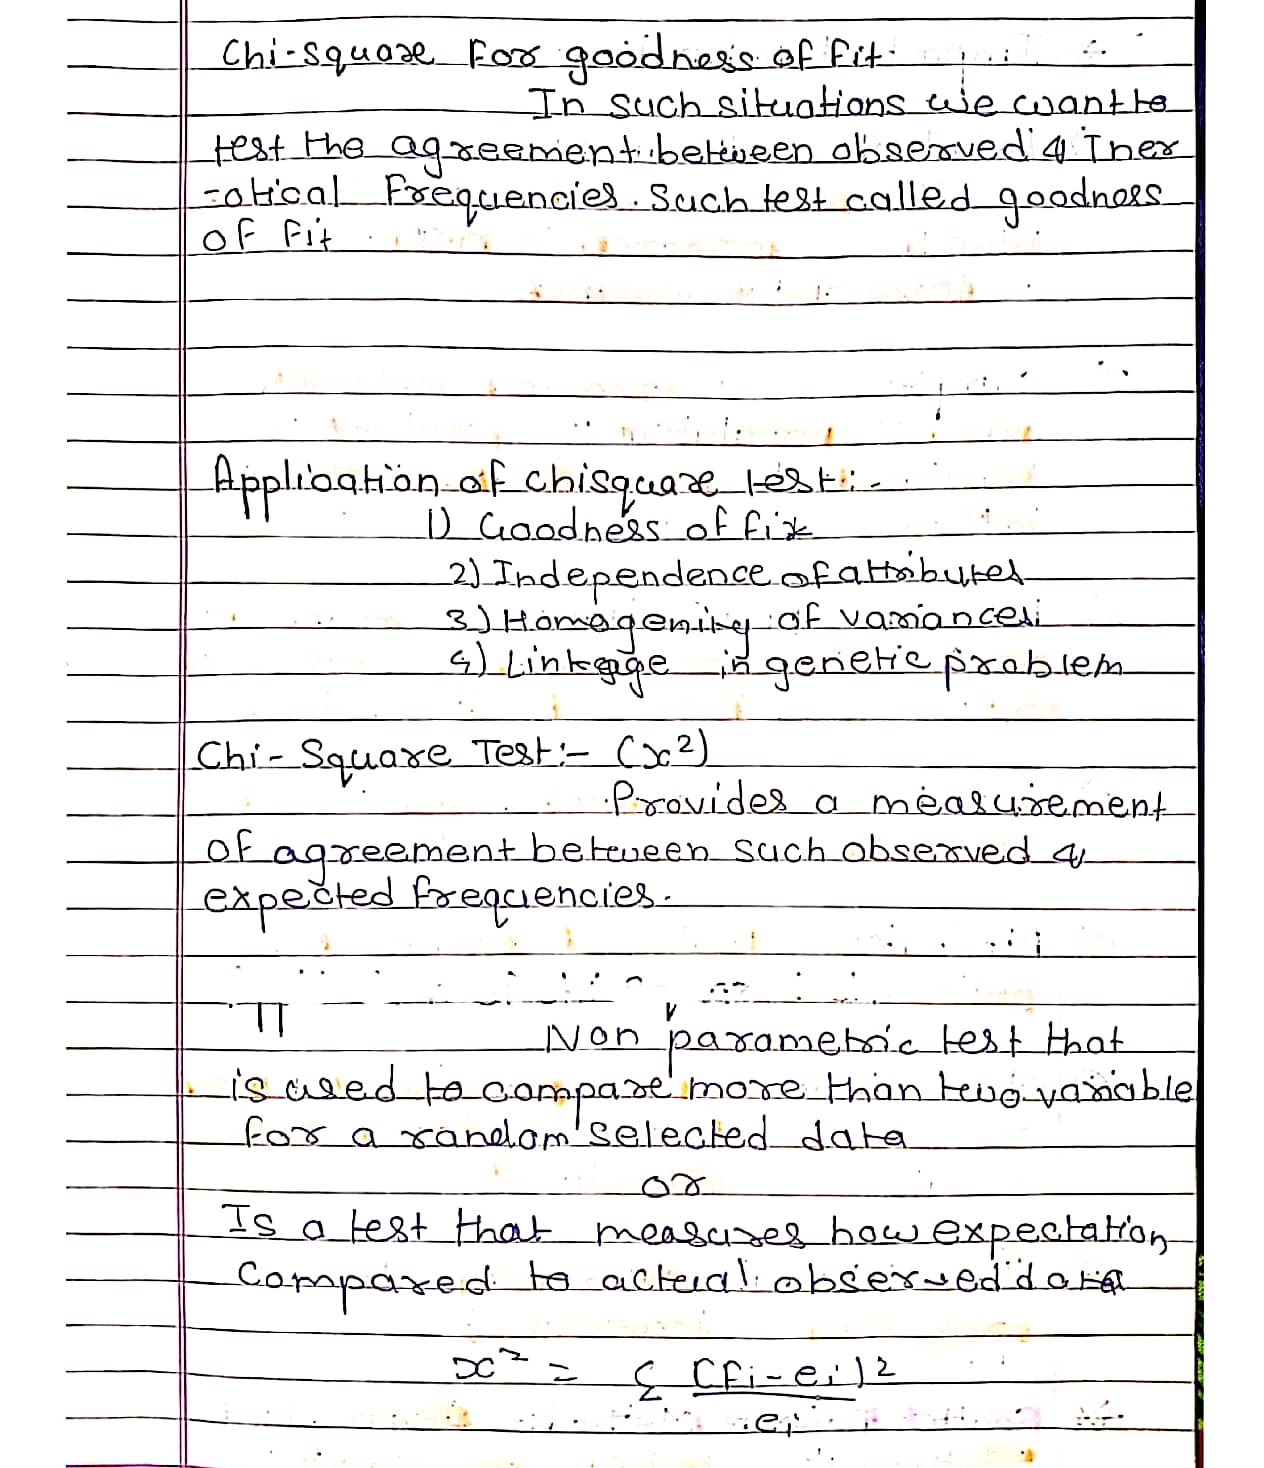 Chi-square For goodness of fit
In such situations we want to
test the agreement between observed & Ther
-otical Frequencies. Such test called goodness
of fit
Application of chisquare test:-
1) Goodness of fit
2) Independence of attributes
3) Homogenity of variances
4) Linkage in genetic problem
Chi-Square Test:- (x²)
Provides a measurement
of agreement between such observed &
expected frequencies.
Non parametric test that
is used to compare more than two variable
for a random selected data
or
Is a test that measures how expectation
Compared to actual observed data
x² = Σ (fi-ei)²
ei